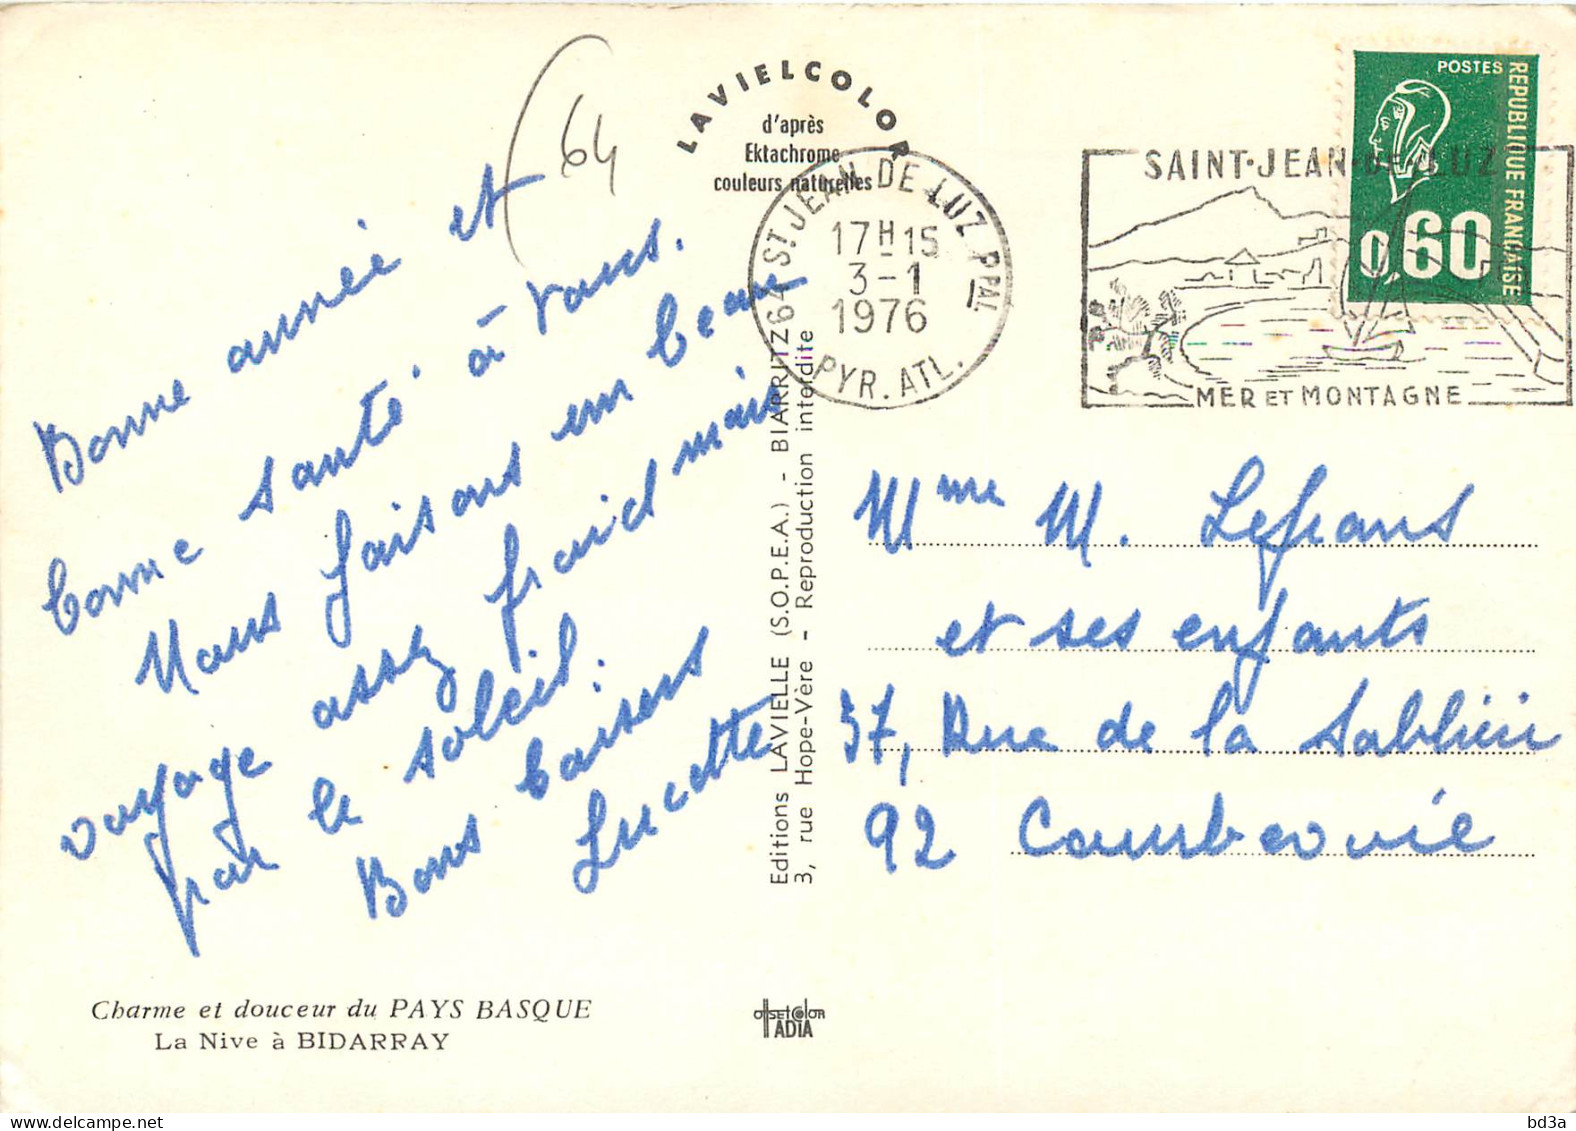 64
LAVIELCOLOR
d'après
Ektachrome
couleurs naturelles
64 ST JEAN DE LUZ PPAL
17H15
3-1
1976
PYR. ATL.
SAINT-JEAN-DE-LUZ
MER ET MONTAGNE
POSTES
REPUBLIQUE FRANÇAISE
0,60
Bonne année et
bonne santé à vous.
Nous faisons un beau
voyage assez froid mais
par le soleil.
Bons baisers
Lucette
Editions LAVIELLE (S.O.P.E.A.) - BIARRITZ
3, rue Hope-Vère - Reproduction interdite
Mme M. Lefrans
et ses enfants
37, Rue de la Sablière
92 Courbevoie
Charme et douceur du PAYS BASQUE
La Nive à BIDARRAY
OffsetColor
IADIA
bd3a